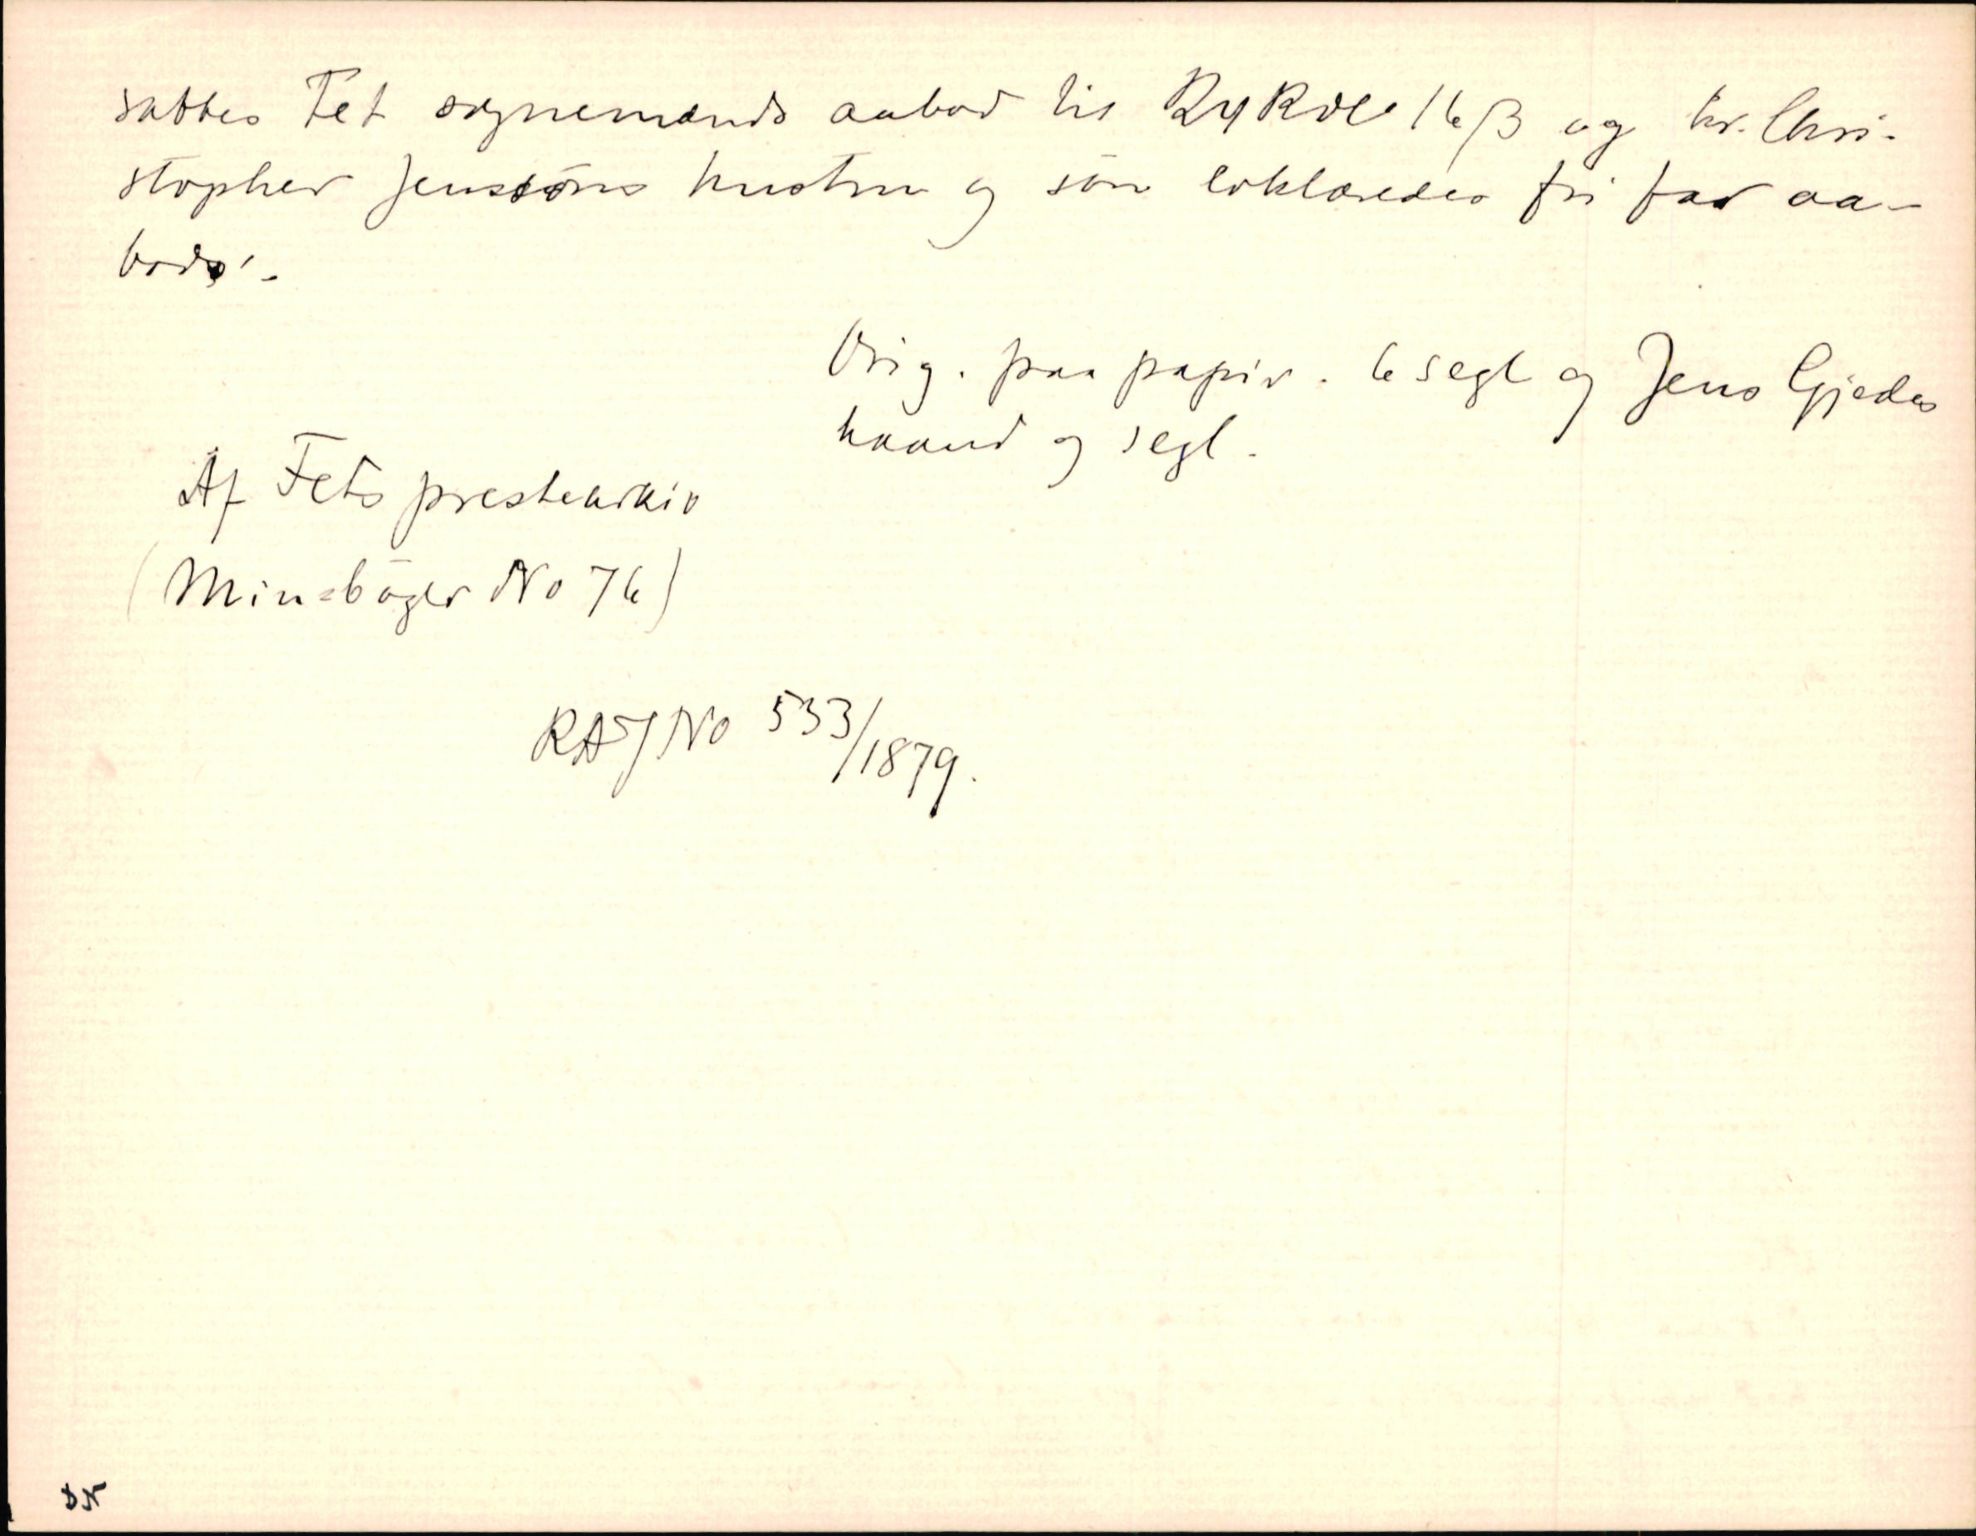 sattes Fet sognemænds aabod til 24 Rdl. 16 β og hr. Chri-
stopher Jenssöns hustru og sön erklæredes fri for aa-
bods'.
Orig. paa papir. 6 segl og Jens Gjedes
haand og segl.
Af Fets prestearkiv
(Min=böger No 76)
RAJ No 533/1879.